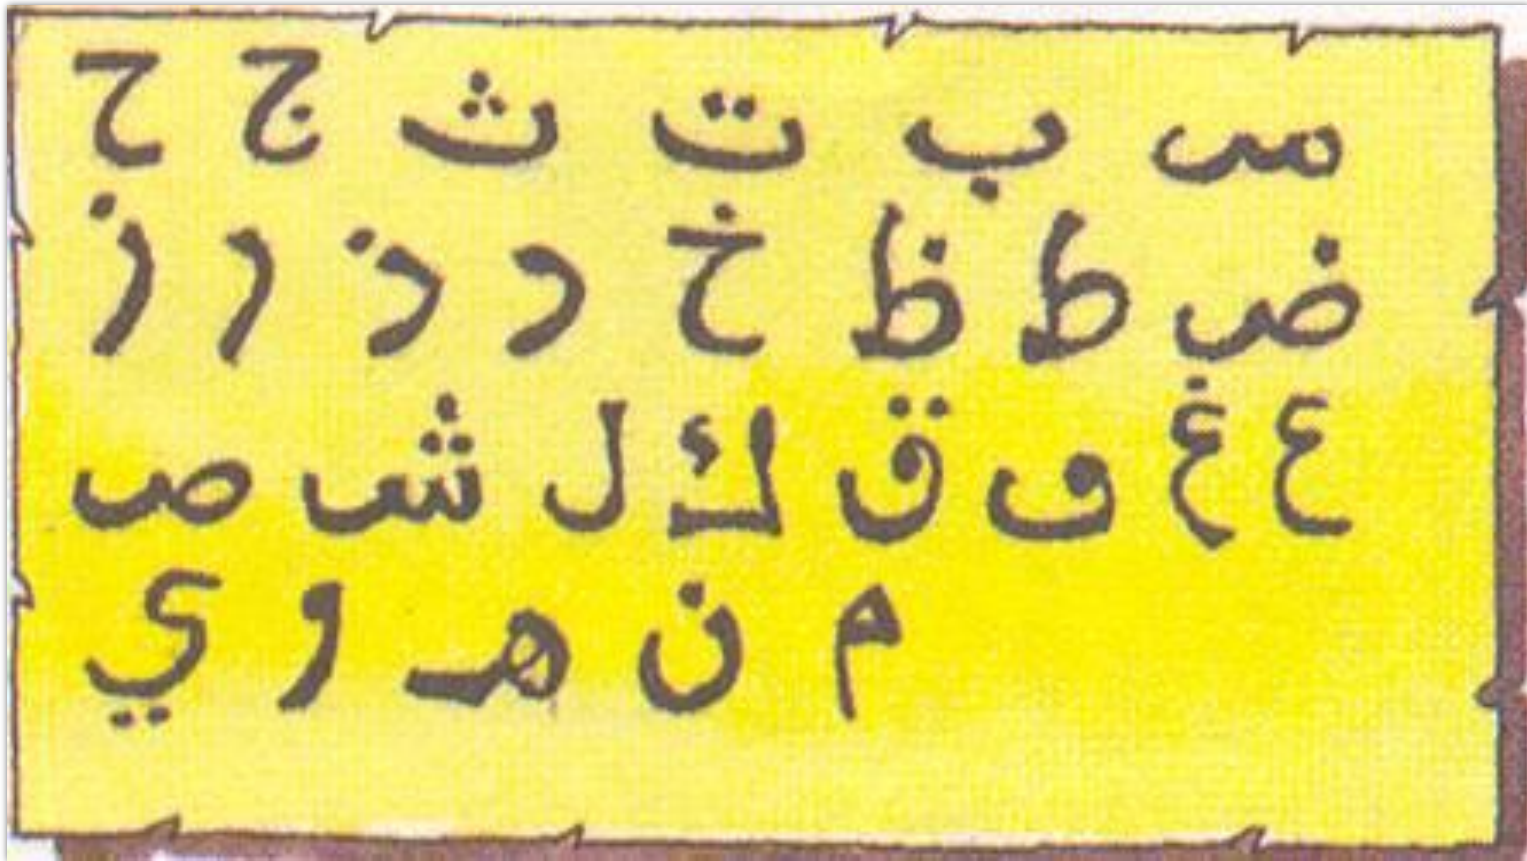 س ب ت ث ج ح
ض ط ظ خ د ذ ر ز
ع غ ف ق ك ل ش ص
م ن هـ و ي